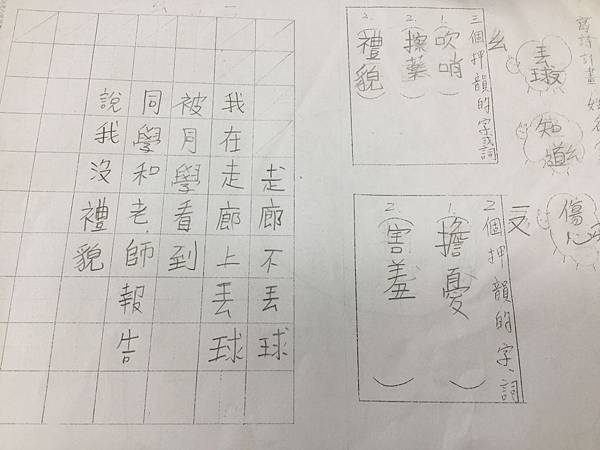 寫詩計畫 姓名
丟球
知道ㄠ
傷心
ㄠ
三個押韻的字或詞
1.(吹哨)
2.(擦藥)
3.(禮貌)
ㄡ
2個押韻的字、詞
1.(擔憂)
2.(害羞)
走廊不丟球
我在走廊上丟球
被月學看到
同學和老師報告
說我沒禮貌